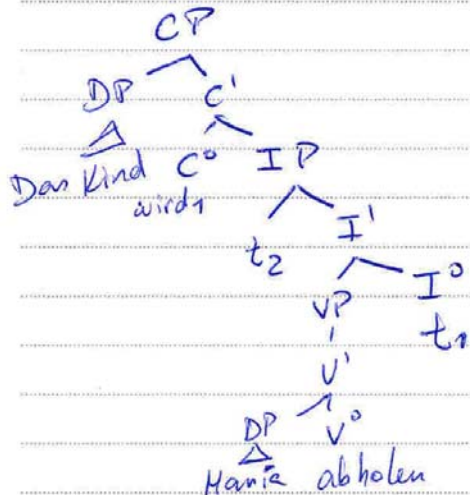 CP
DP C'
Das Kind C⁰ IP
wird₁
t₂ I'
VP I⁰
t₁
V'
DP V⁰
Maria abholen